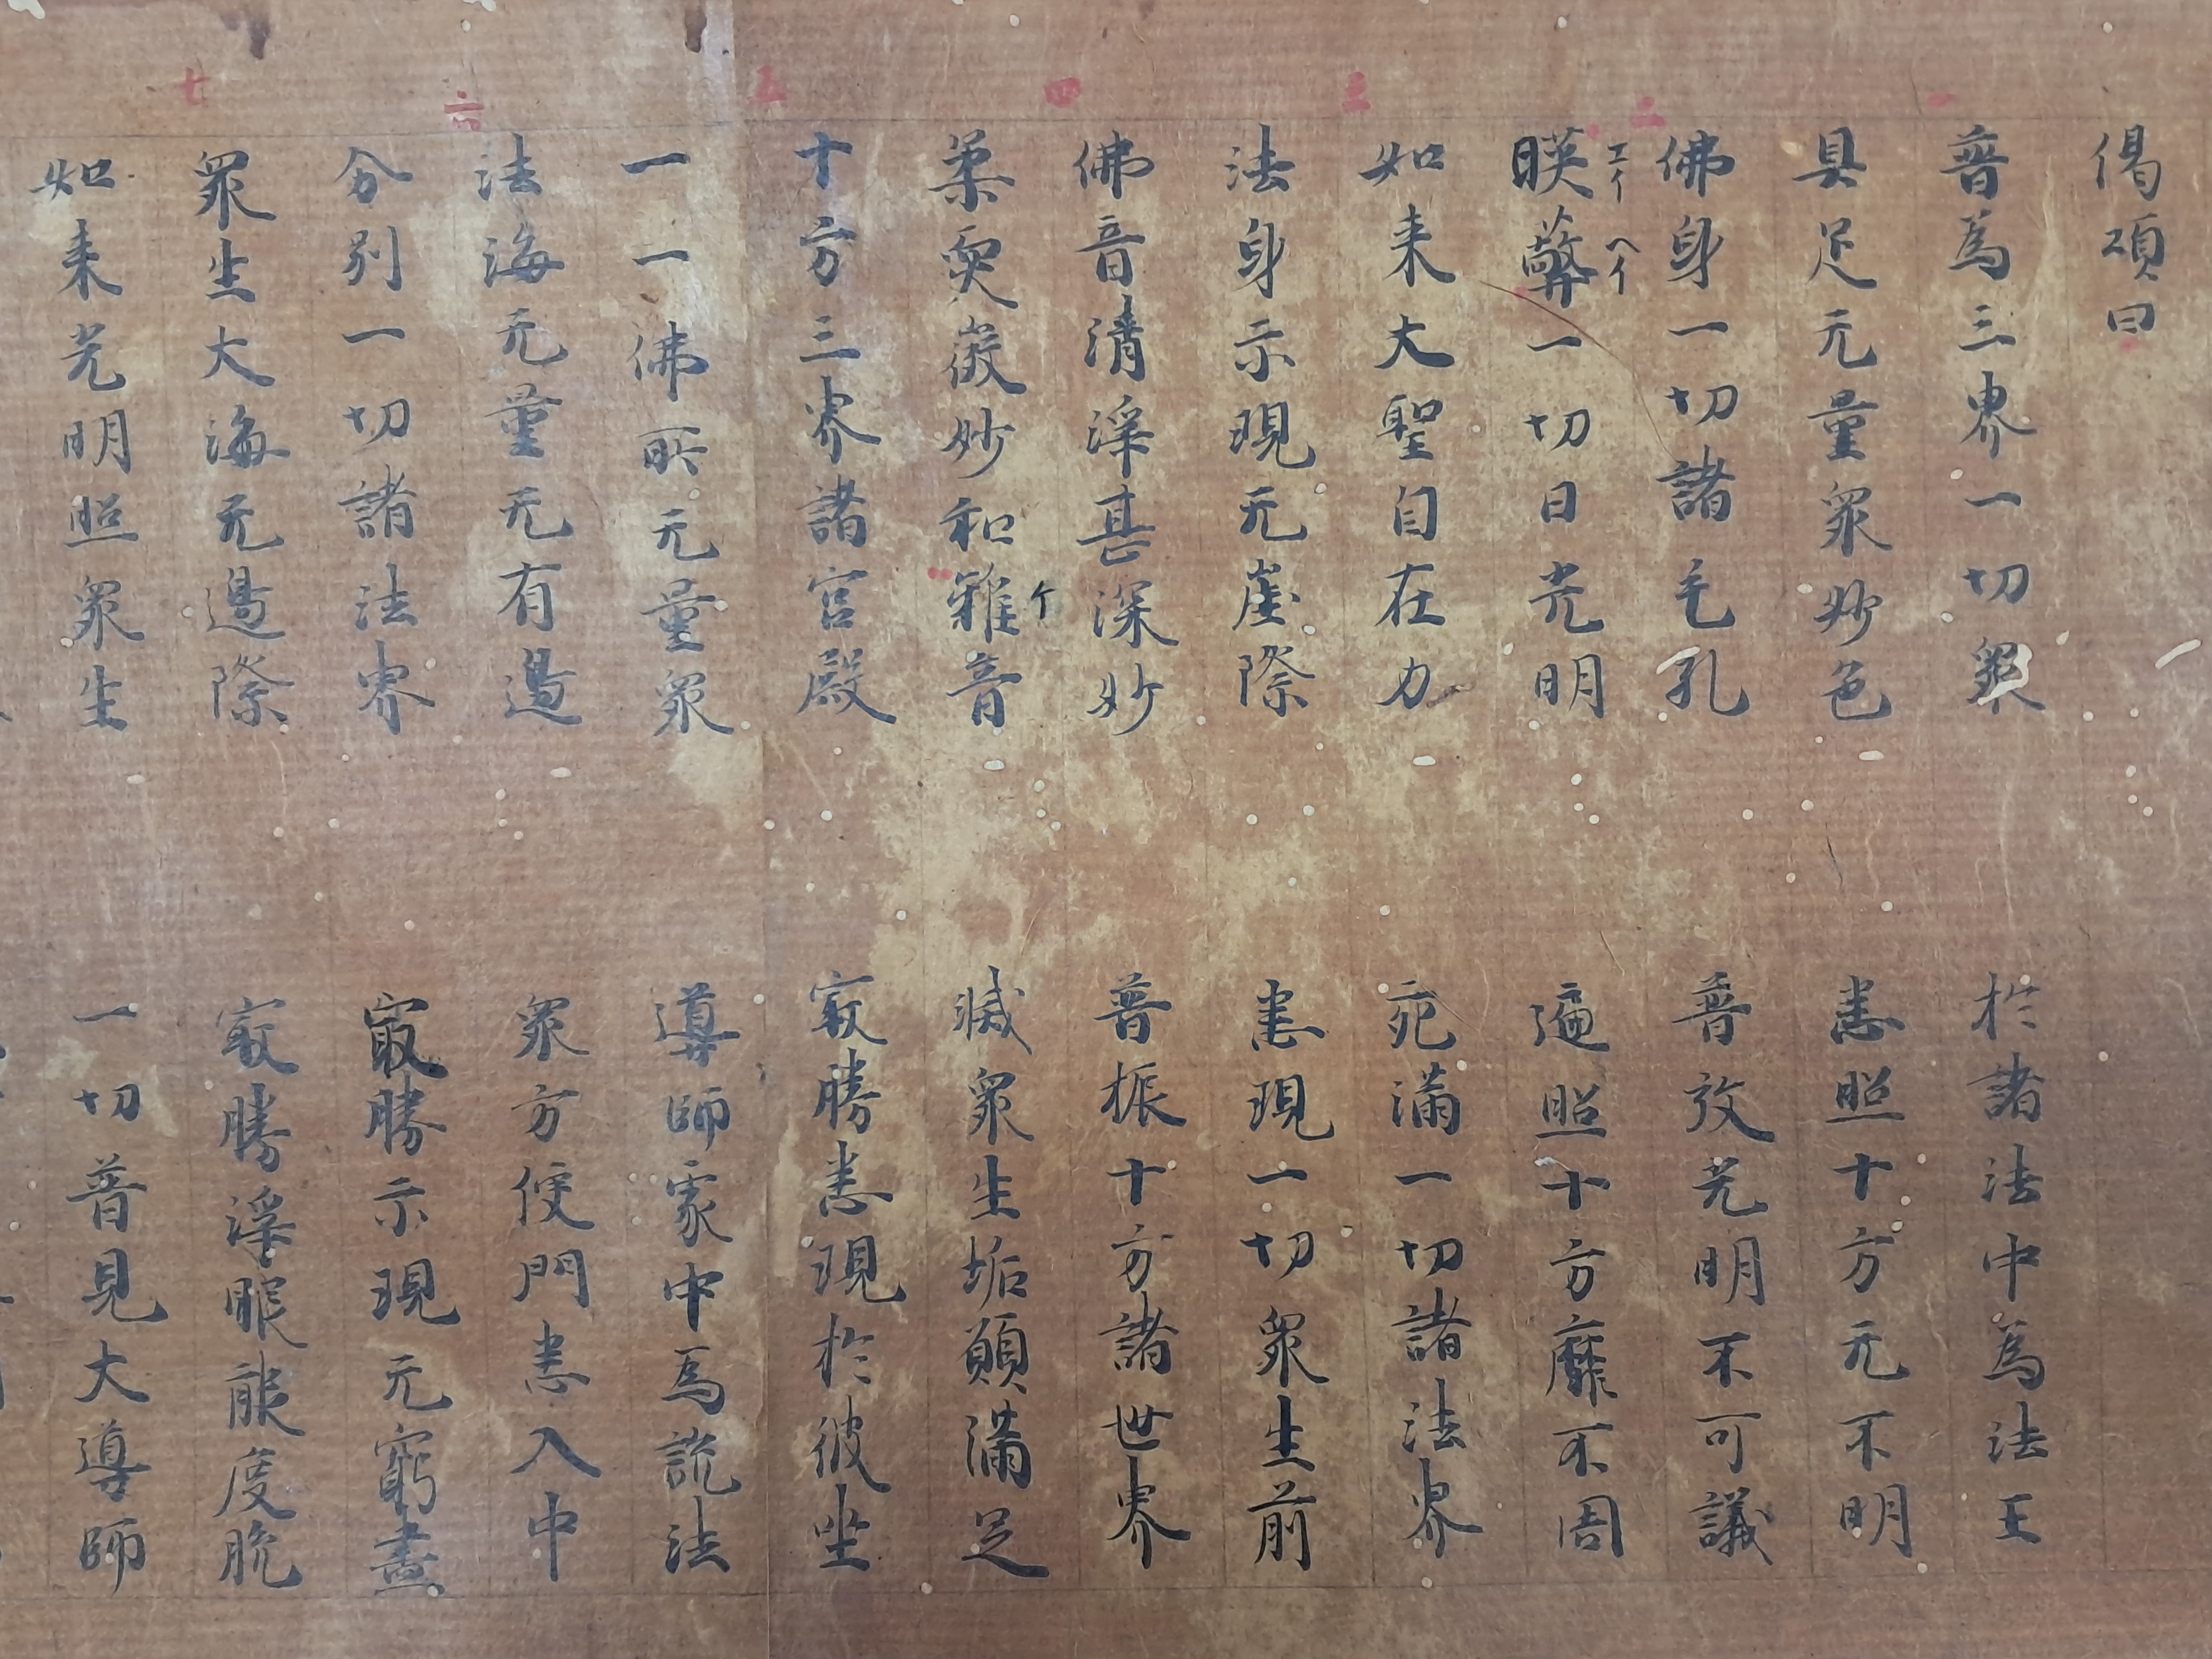 偈頌曰
一
普為三界一切衆 於諸法中為法王
具足无量衆妙色 悉照十方无不明
二
佛身一切諸毛孔 普放光明不可議
エイ ヘイ
暎蔽一切日光明 遍照十方靡不周
三
如来大聖自在力 充滿一切諸法界
法身示現无崖際 悉現一切衆生前
四
佛音清淨甚深妙 普振十方諸世界
柔耎微妙和雅音 滅衆生垢願滿足
五
十方三界諸宮殿 㝡勝悉現於彼坐
一一佛所无量衆 導師處中爲説法
六
法海无量无有邊 衆方便門悉入中
分別一切諸法界 㝡勝示現无窮盡
七
衆生大海无邊際 㝡勝淨眼能度脱
如来光明照衆生 一切普見大導師